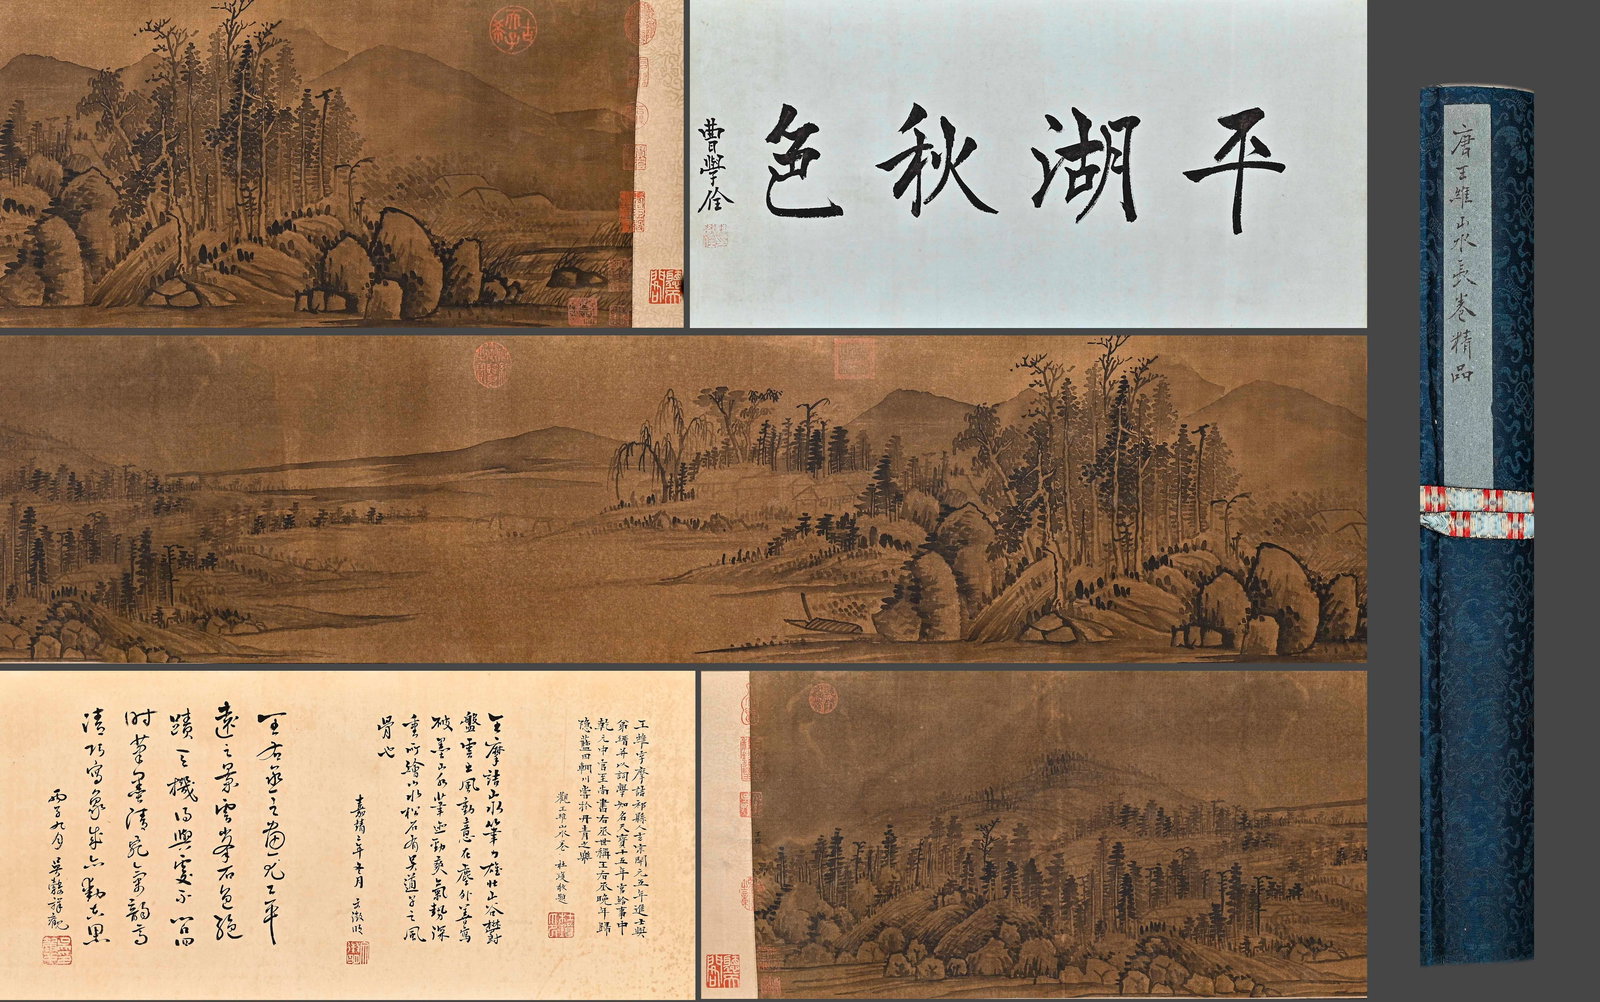 平湖秋色
曹學佺
唐王維山水長卷精品
王維字摩詰祁縣人玄宗開元五年進士與
弟縉并以詞學知名天寶十五年官給事中
乾元中官至尚書右丞世稱王右丞晚年歸
隱藍田輞川常於丹青之樂
觀王維山水卷 杜瓊敬題
王摩詰山水筆力雄壯山谷鬱
盤雲水風動意在塵外善寫
破墨山水筆迹勁爽氣勢深
重所繪山水松石有吳道子之風
骨也
嘉靖三年七月 文徵明
王右丞之畫尤工平
遠之景雲峯石色絕
蹟天機
時筆墨清宛氣韻高
清巧寫象
丙子九月 吳穀祥觀